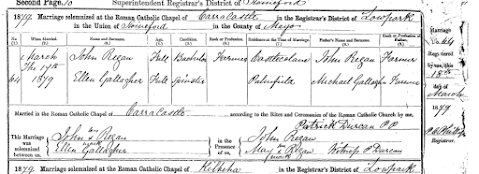 Second Page
Superintendent Registrar's District of Swineford
1879 Marriage solemnized at the Roman Catholic Chapel of Carracastle in the Registrar's District of Lowpark
in the Union of Swineford in the County of Mayo
No. When Married. Name and Surname. Age. Condition. Rank or Profession. Residence at the Time of Marriage. Father's Name and Surname. Rank or Profession of Father.
March The 17th 1879 John Regan Full Bachelor Farmer John Regan Farmer
64 Ellen Gallagher Full Spinster Michael Gallagher Farmer
Married in the Roman Catholic Chapel of Carracastle according to the Rites and Ceremonies of the Roman Catholic Church by me,
Patrick Durcan P.P.
This Marriage was solemnized between us, John his x Regan
Ellen Gallagher
in the Presence of us, John Regan
Mary her x mark Regan Witness P Durcan
1879 Marriage solemnized at the Roman Catholic Chapel of in the Registrar's District of Lowpark
Marriage
64
Registered by me, this
18th
March
1879
Registrar.